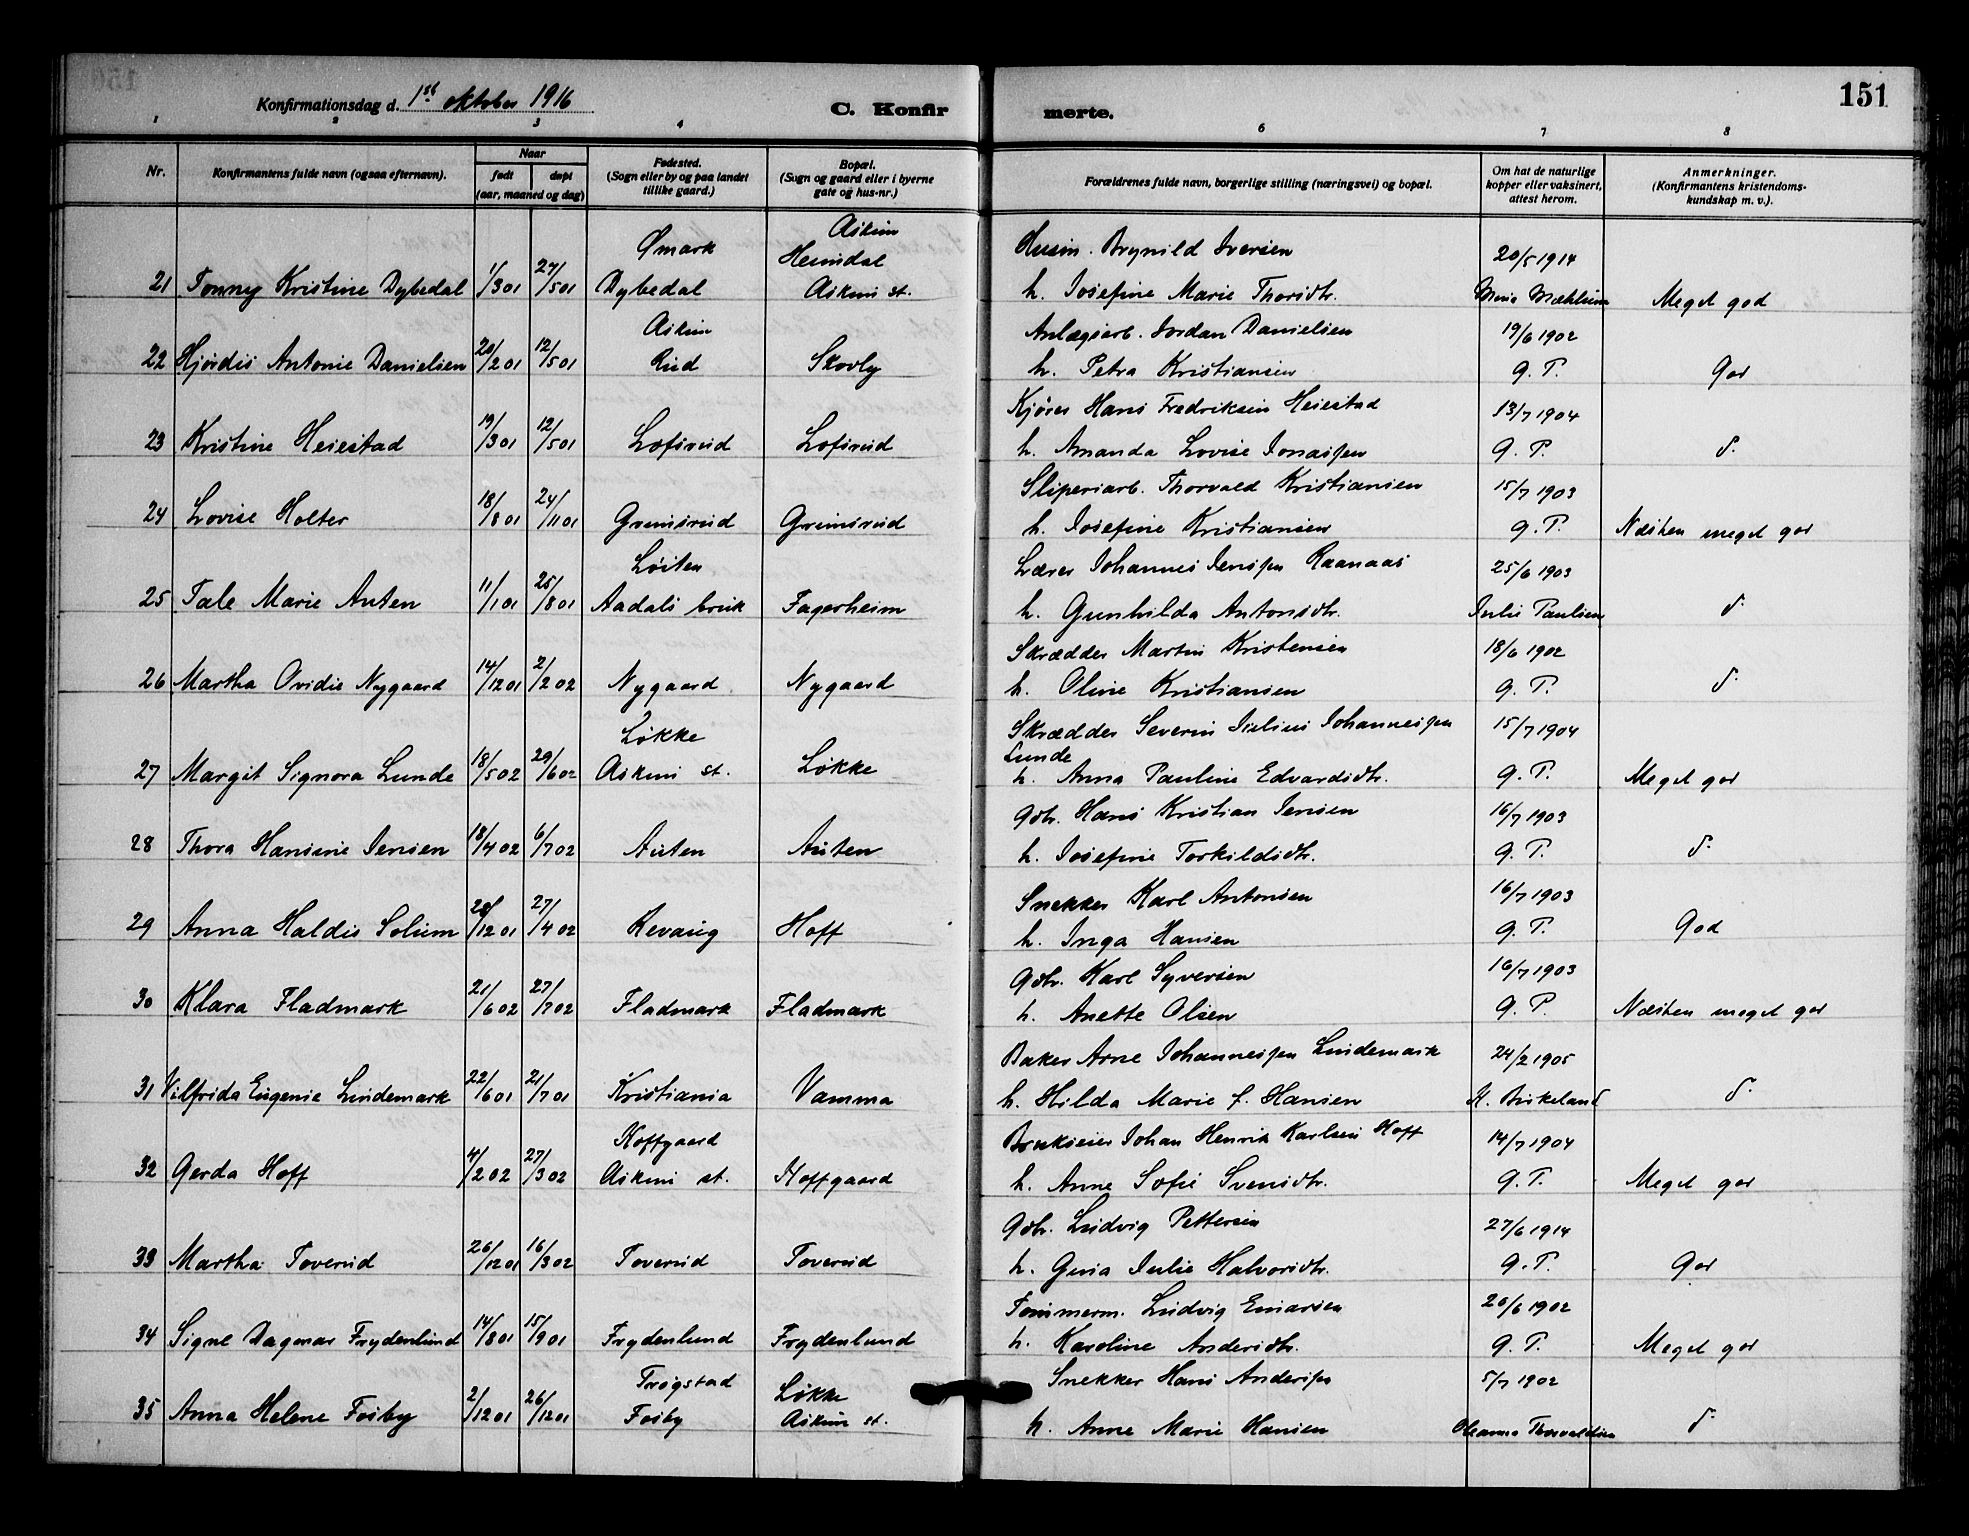 151
Konfirmationsdag d. 1st oktober 1916
C. Konfirmerte.
1 2 3 4 6 7 8
Nr.
Konfirmantens fulde navn (ogsaa efternavn).
Naar
født døpt
(aar, maaned og dag)
Fødested.
(Sogn eller by og paa landet
tillike gaard.)
Bopæl.
(Sogn og gaard eller i byerne
gate og hus-nr.)
Forældrenes fulde navn, borgerlige stilling (næringsvei) og bopæl.
Om hat de naturlige
kopper eller vaksinert,
attest herom.
Anmerkninger.
(Konfirmantens kristendoms-
kundskap m. v.).
Ømark Askim Brynild Iversen 20/5 1914
Heimdal
21 Tonny Kristine Dybedal 1/3 01 27/5 01 Dybedal Askim st. h. Josefine Marie Thorsdtr. Mæhlum Meget god
Askim Anlægsarb. Jordan Danielsen 19/6 1902
22 Hjørdis Antonie Danielsen 20/2 01 12/5 01 Rud Skovly h. Petra Kristiansen G. P. God
Kjører Hans Fredriksen Heiestad 13/7 1904
23 Kristine Heiestad 19/3 01 12/5 01 Lofsrud Lofsrud h. Amanda Lovise Jonassen G. P. d.
Sliperiarb. Thorvald Kristiansen 15/7 1903
24 Lovise Holter 18/8 01 24/11 01 Grimsrud Grimsrud h. Josefine Kristiansen G. P. Næsten meget god
Løiten Lærer Johannes Jenssen Raanaas 25/6 1903
25 Tale Marie Auten 11/1 01 25/8 01 Aadals bruk Fagerheim h. Gunhilda Antonsdtr. Julie Paulsen d.
Skrædder Martin Kristensen 18/6 1902
26 Martha Ovidie Nygaard 14/12 01 2/2 02 Nygaard Nygaard h. Oline Kristiansen G. P. d.
Løkke Skrædder Severin Julius Johannessen 15/7 1904
Lunde
27 Margit Signora Lunde 18/5 02 29/6 02 Askim st. Løkke h. Anna Pauline Edvardsdtr. G. P. Meget god
Gbr. Hans Kristian Jensen 16/7 1903
28 Thora Hansine Jensen 18/4 02 6/7 02 Auten Auten h. Josefine Torkildsdtr. G. P. d.
Snekker Karl Antonsen 16/7 1903
29 Anna Haldis Solum 28/12 01 27/4 02 Revaug Hoff h. Inga Hansen G. P. God
Gbr. Karl Syversen 16/7 1903
30 Klara Fladmark 21/6 02 27/7 02 Fladmark Fladmark h. Anette Olsen G. P. Næsten meget god
Baker Arne Johannessen Lindemark 24/2 1905
31 Vilfrida Eugenie Lindemark 22/6 01 21/7 01 Kristiania Vamma h. Hilda Marie f. Hansen K. Birkeland d.
Hoffgaard Brukseier Johan Henrik Karlsen Hoff 14/7 1904
32 Gerda Hoff 4/2 02 27/3 02 Askim st. Hoffgaard h. Anne Sofie Svensdtr. G. P. Meget god
Gbr. Ludvig Pettersen 27/6 1914
33 Martha Toverud 26/12 01 16/3 02 Toverud Toverud h. Gina Julie Halvorsdtr. G. P. God
Tømmerm. Ludvig Einarsen 26/6 1902
34 Signe Dagmar Frydenlund 14/8 01 15/9 01 Frydenlund Frydenlund h. Karoline Andersdtr. G. P. Meget god
Trøgstad Løkke Snekker Hans Anderssen 5/7 1902
35 Anna Helene Fosby 2/12 01 26/12 01 Fosby Askim st. h. Anne Marie Hansen Oleanna Thorvaldsen d.